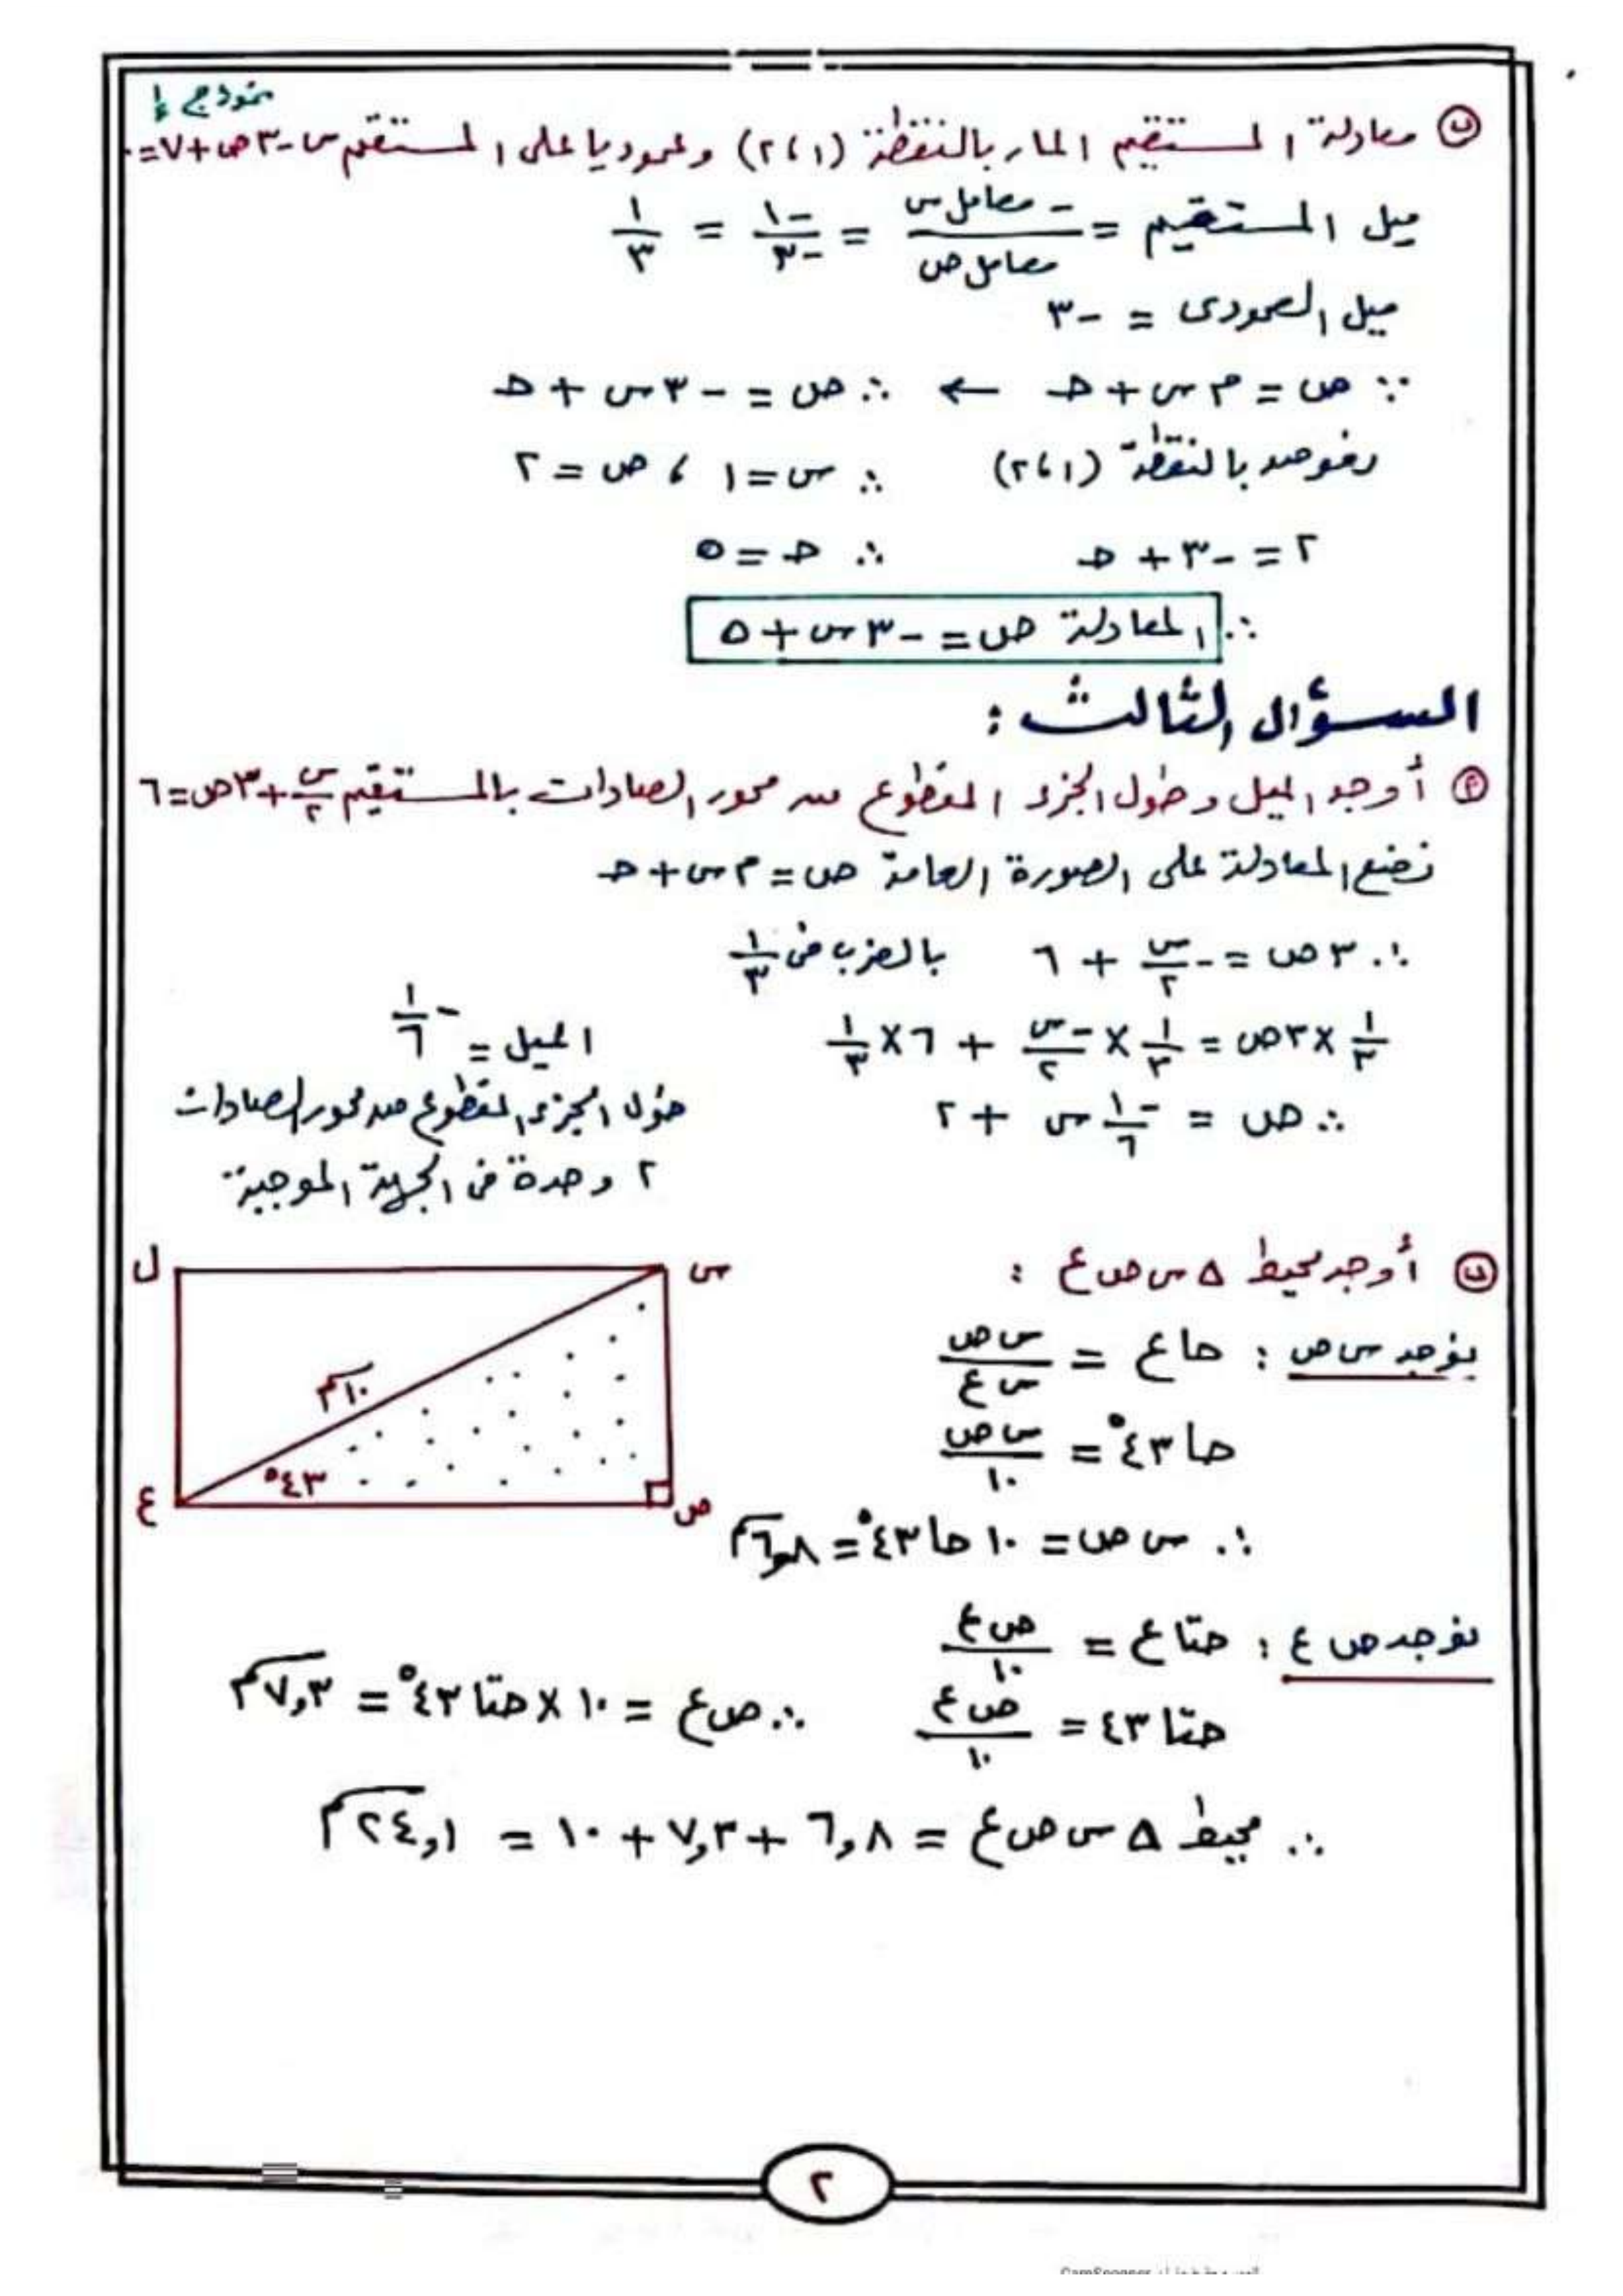 نموذج ٤
ب معادلة المستقيم المار بالنقطة (١،٢) وعموديا على المستقيم س - ٣ص + ٧ = ٠
ميل المستقيم = - معامل س / معامل ص = -١ / -٣ = ١/٣
ميل العمودى = -٣
∵ ص = م س + حـ ← ∴ ص = -٣ س + حـ
نعوض بالنقطة (١،٢) ∴ س = ١ ، ص = ٢
٢ = -٣ + حـ ∴ حـ = ٥
∴ المعادلة ص = -٣ س + ٥
السؤال الثالث :
أ أوجد الميل وطول الجزء المقطوع من محور الصادات بالمستقيم س/٢ + ٣ص = ٦
نضع المعادلة على الصورة العامة ص = م س + حـ
∴ ٣ ص = - س/٢ + ٦ بالضرب فى ١/٣
١/٣ × ٣ ص = ١/٣ × -س/٢ + ٦ × ١/٣
∴ ص = -١/٦ س + ٢
الميل = -١/٦
طول الجزء المقطوع من محور الصادات
٢ وحدة فى الجهة الموجبة
ب أوجد محيط Δ س ص ع :
نوجد س ص : حا ع = س ص / س ع
حا ٤٣° = س ص / ١٠
∴ س ص = ١٠ حا ٤٣° = ٦,٨ سم
ل
س
١٠ سم
٤٣°
ع
ص
نوجد ص ع : حتا ع = ص ع / ١٠
حتا ٤٣ = ص ع / ١٠ ∴ ص ع = ١٠ × حتا ٤٣° = ٧,٣ سم
∴ محيط Δ س ص ع = ٦,٨ + ٧,٣ + ١٠ = ٢٤,١ سم
٢